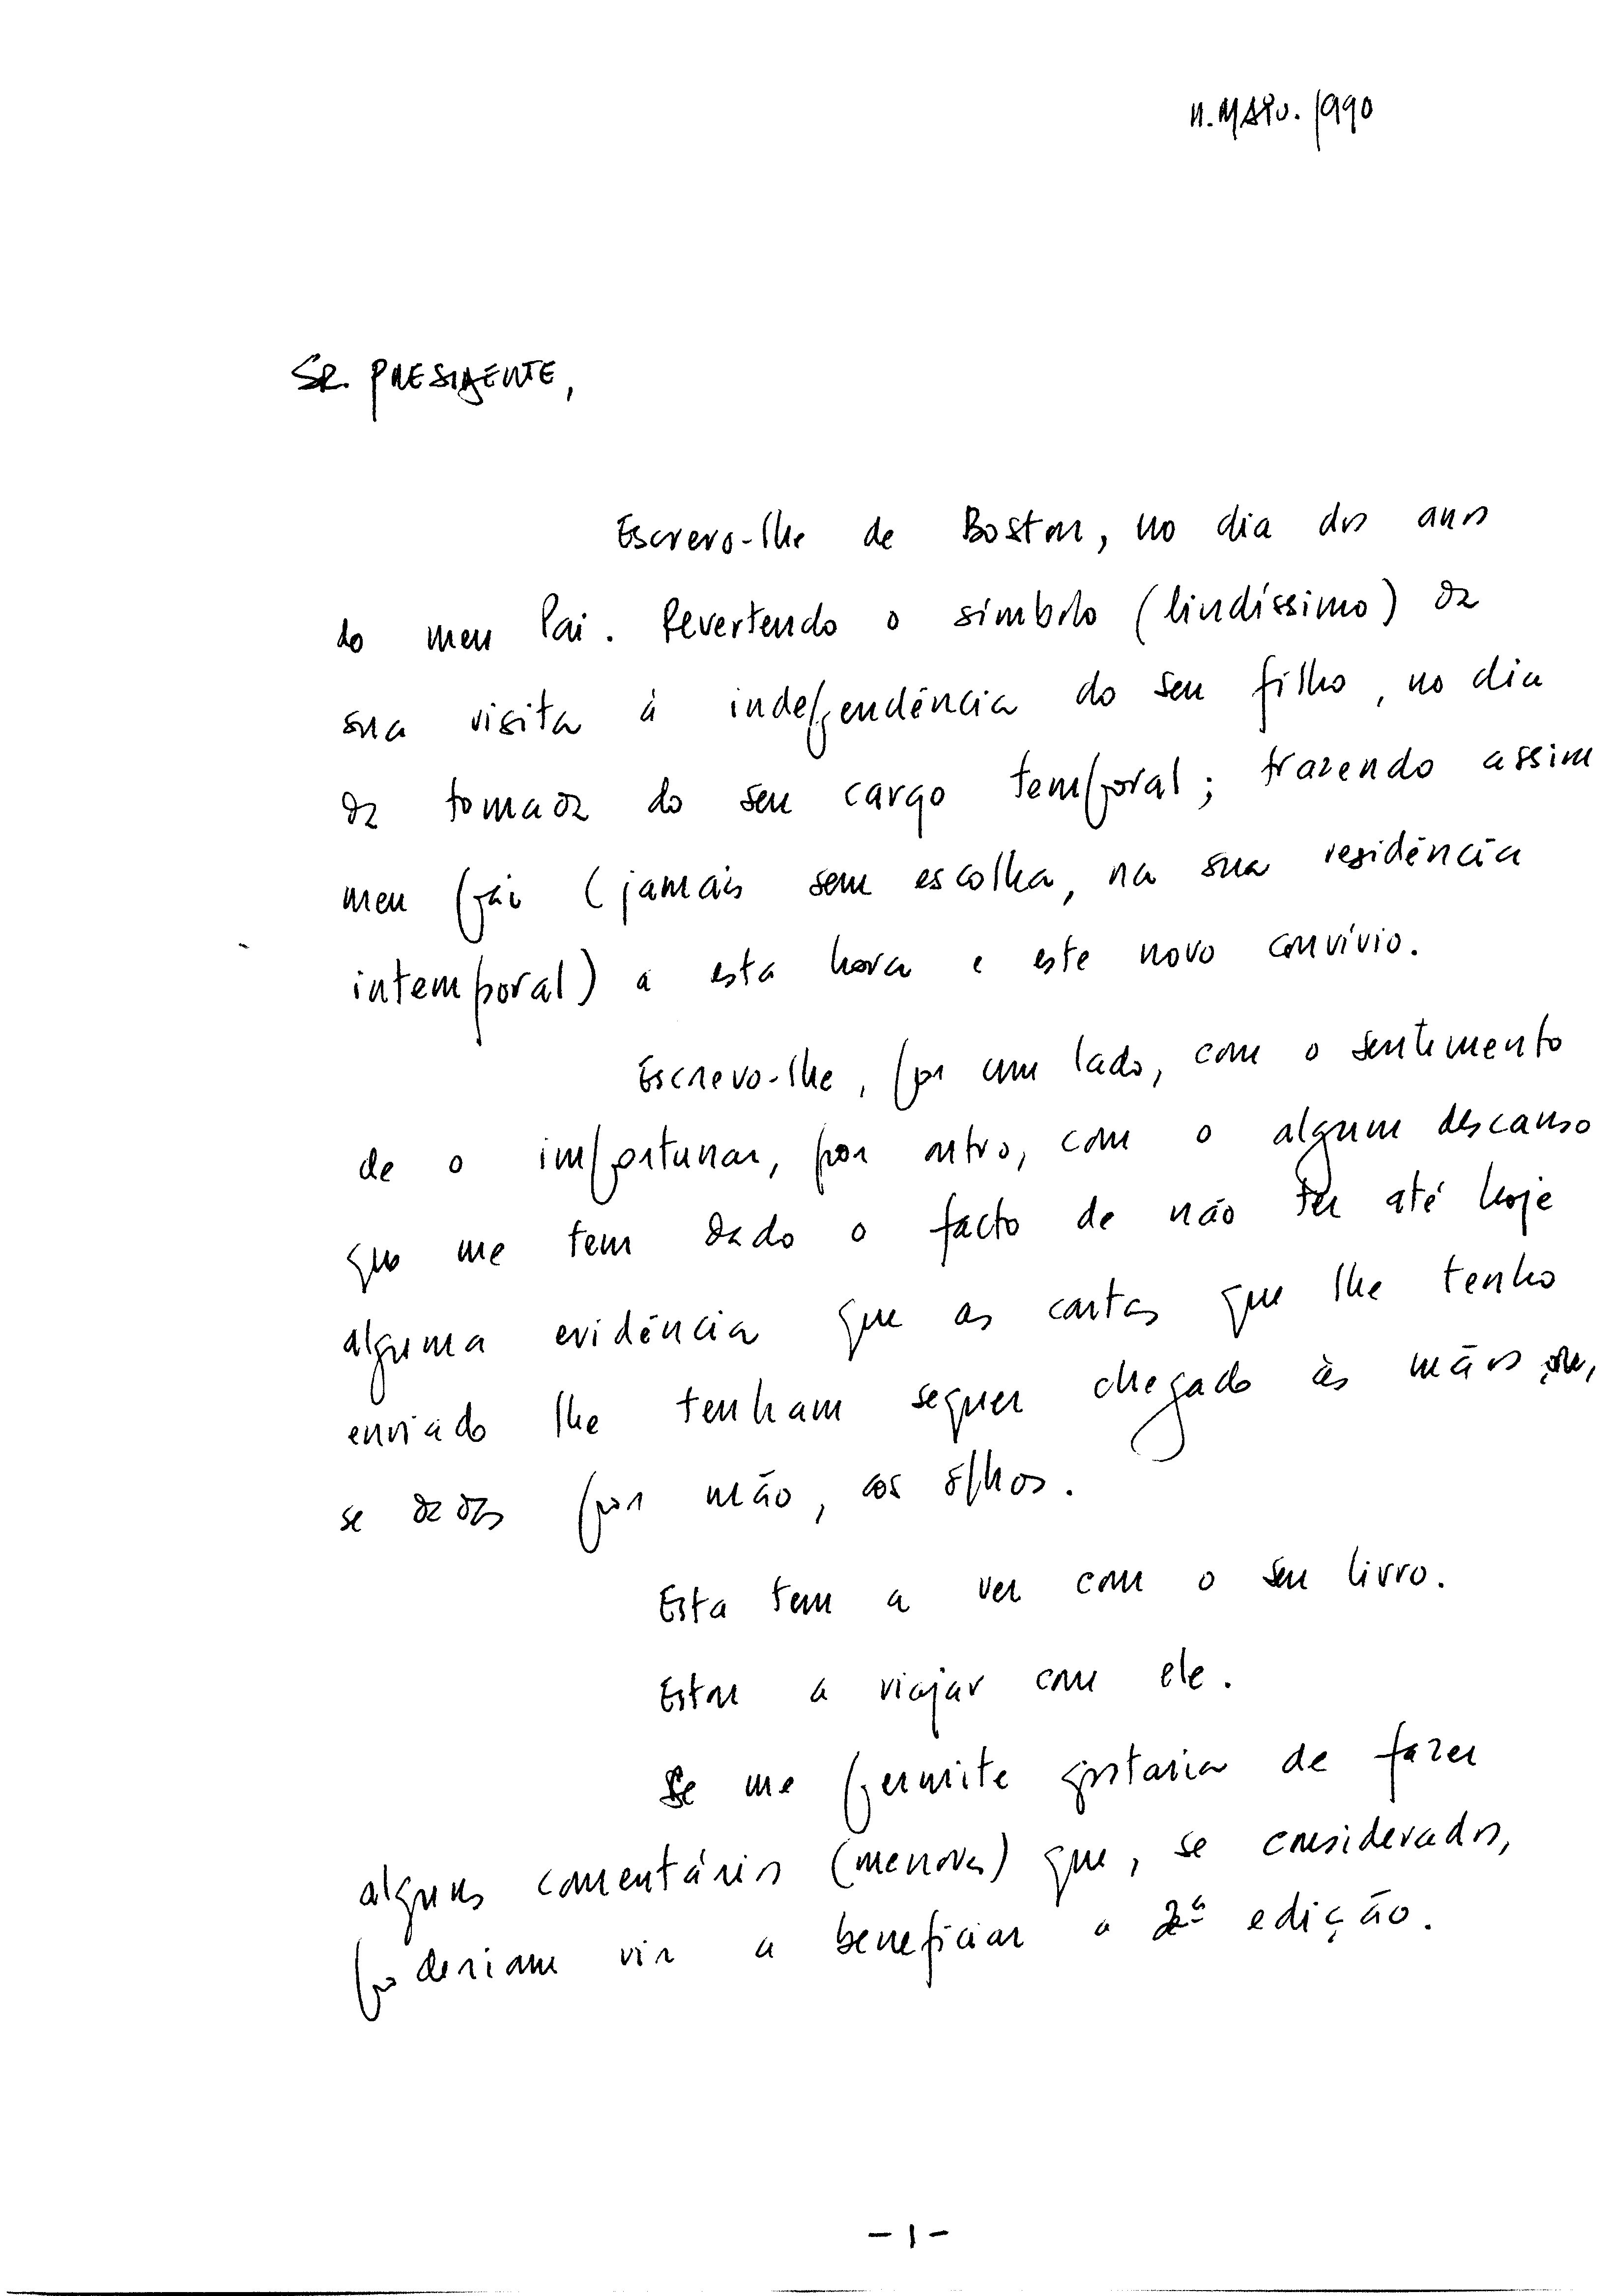 11.MAIO.1990
SR. PRESIDENTE,
Escrevo-lhe de Boston, no dia dos anos
do meu Pai. Revertendo o símbolo (lindíssimo) da
sua visita à independência do seu filho, no dia
da tomada do seu cargo temporal; trazendo assim
meu pai (jamais sem escolha, na sua residência
intemporal) a esta hora e este novo convívio.
Escrevo-lhe, por um lado, com o sentimento
de o importunar, por outro, com o algum descanso
que me tem dado o facto de não ter até hoje
alguma evidência que as cartas que lhe tenho
enviado lhe tenham sequer chegado às mãos ou,
se dadas por mão, aos olhos.
Esta tem a ver com o seu livro.
Estou a viajar com ele.
Se me permite gostaria de fazer
alguns comentários (menores) que, se considerados,
poderiam vir a beneficiar a 2ª edição.
- 1 -